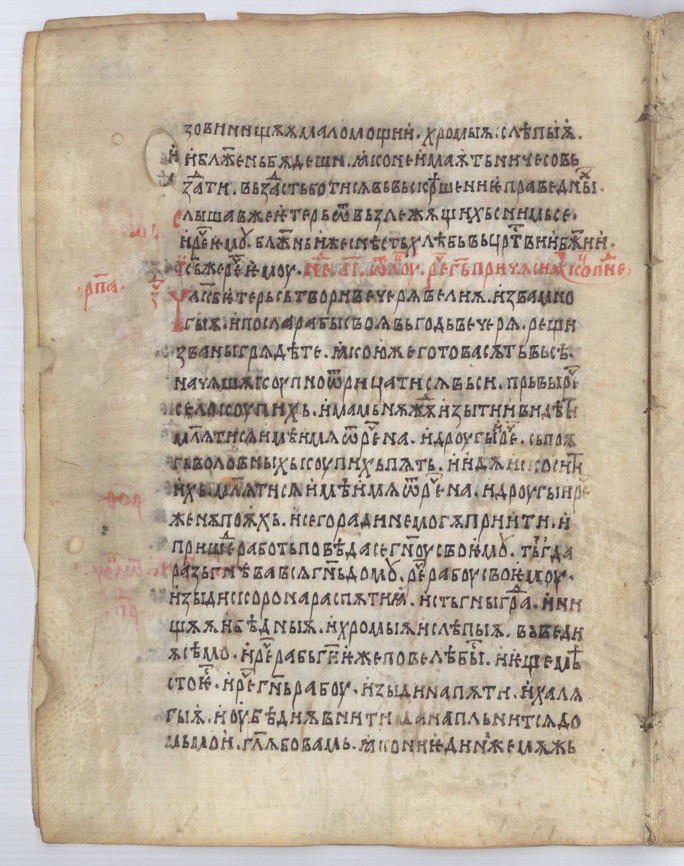 зови нищѫѧ маломощиѝ · хромыѧ · слѣпыѧ ·
и блⷤенъ бѫдеши · ꙗко не имаѫтъ ничесо въ
зⷣати · въздⷭтъ бо ти сѧ въ въскр҃шение праведныⷯ ·
слышавже етеръ ѿ възлежѧщихъ с нимь се ·
и реⷱ емоу · блⷤнъ иже снѣстъ хлѣбъ въ црⷭтви бж҃ии ·
·рп҃а·
чл҃къ етеръ сътвори вечерѧ велиѧ · и зва мно
гыѧ · и посла рабы своѧ въ годъ вечерѧ · рещи
званыⷨ грѧдѣте · ꙗко юже готова сѫтъ въсѣ ·
начѧшѧ коупно ѿрицати сѧ въси · прьвы реⷱ
село коупихъ · имамь нѫждѫ изыти и видѣти
млѧ тисѧ имѣи мѧ ѿреⷱна · и дроугыи реⷱ · съпрѫ
гъ воловныхъ коупихъ пѧть · и идѫ искоусит
ихъ млѧ тисѧ имѣи мѧ ѿреⷱна · и дроугыи реⷱ
женѫ поѧхъ · и сего ради не могѫ приити · и
пришеⷣ работъ повѣда се гн҃оу своемоу · тъгда
разъгнѣвавсѧ гн҃ъ домоу · реⷱ рабоу своемоу ·
изыди скоро на распѫтиꙗ · и стьгны граⷣ · и ни
щѫѧ и бѣдныѧ · и хромыѧ и слѣпыѧ · въведи
ѧ сѣмо · и реⷱ рабъ ги҃ иже повелѣ быⷭ · и еще мѣ
сто еⷭ · и реⷱ гн҃ъ рабоу · изыди на пѫти · и халѫ
гыѧ · и оубѣди ѧ вънити да наплънитсѧ до
мъ мои · гл҃ѫ бо вамъ · ꙗко ни единъже мѫжъ